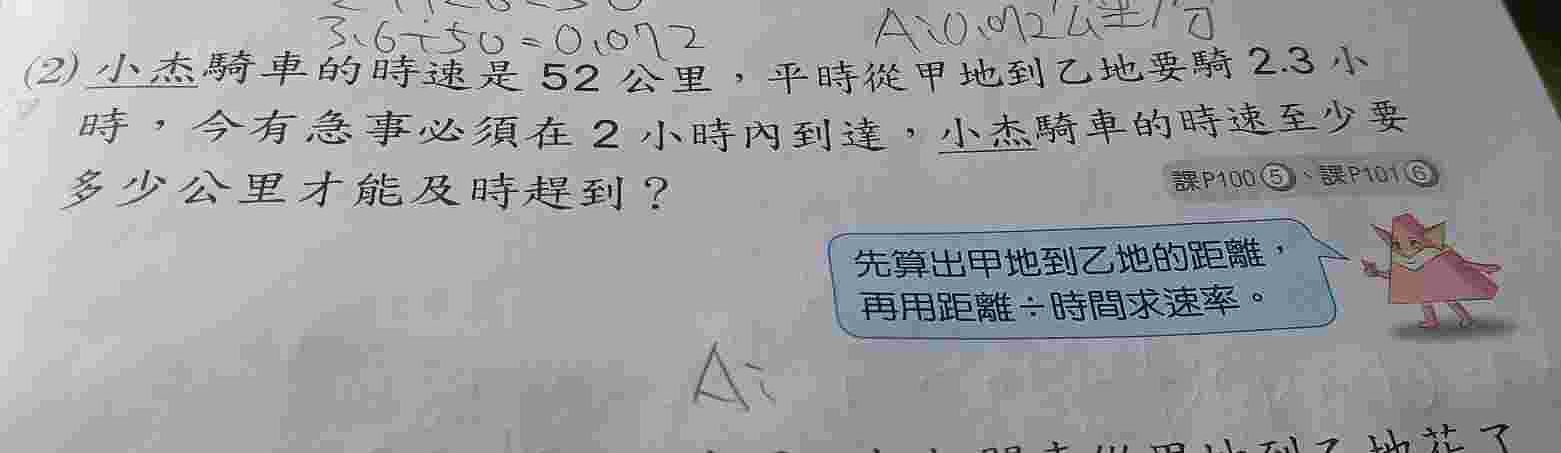 3.6÷50=0.072
A:0.072公里/分
(2) 小杰騎車的時速是 52 公里，平時從甲地到乙地要騎 2.3 小
時，今有急事必須在 2 小時內到達，小杰騎車的時速至少要
多少公里才能及時趕到？
課P100⑤、課P101⑥
先算出甲地到乙地的距離，
再用距離÷時間求速率。
A:
地到乙地花了